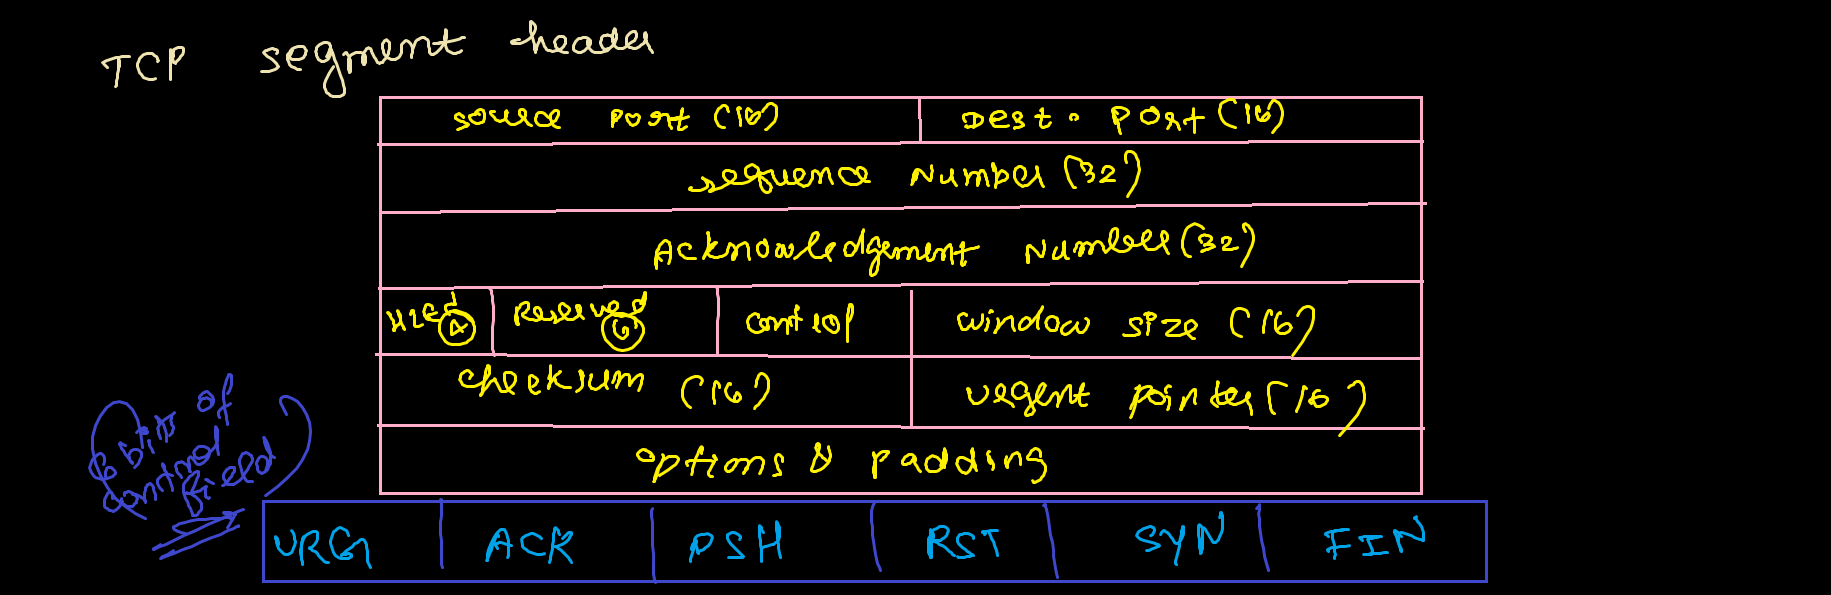 TCP segment header
source port (16) Dest. port (16)
sequence Number (32)
Acknowledgement Number (32)
Reserved 6 control window size (16)
checksum (16) urgent pointer (16)
options & padding
6 bits of
control
field
URG ACK PSH RST SYN FIN